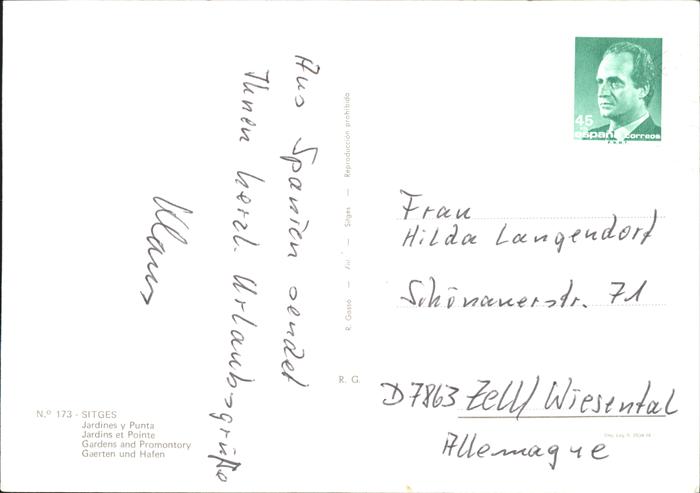 Aus Spanien sendet
Ihnen herzl. Urlaubsgrüße
Klaus
Nº 173 - SITGES
Jardines y Punta
Jardins et Pointe
Gardens and Promontory
Gaerten und Hafen
R. Gassó — — Sitges — Reproducción prohibida
R. G.
45
españa correos
Frau
Hilda Langendorf
Schönauerstr. 71
D 7863 Zell/Wiesental
Allemagne